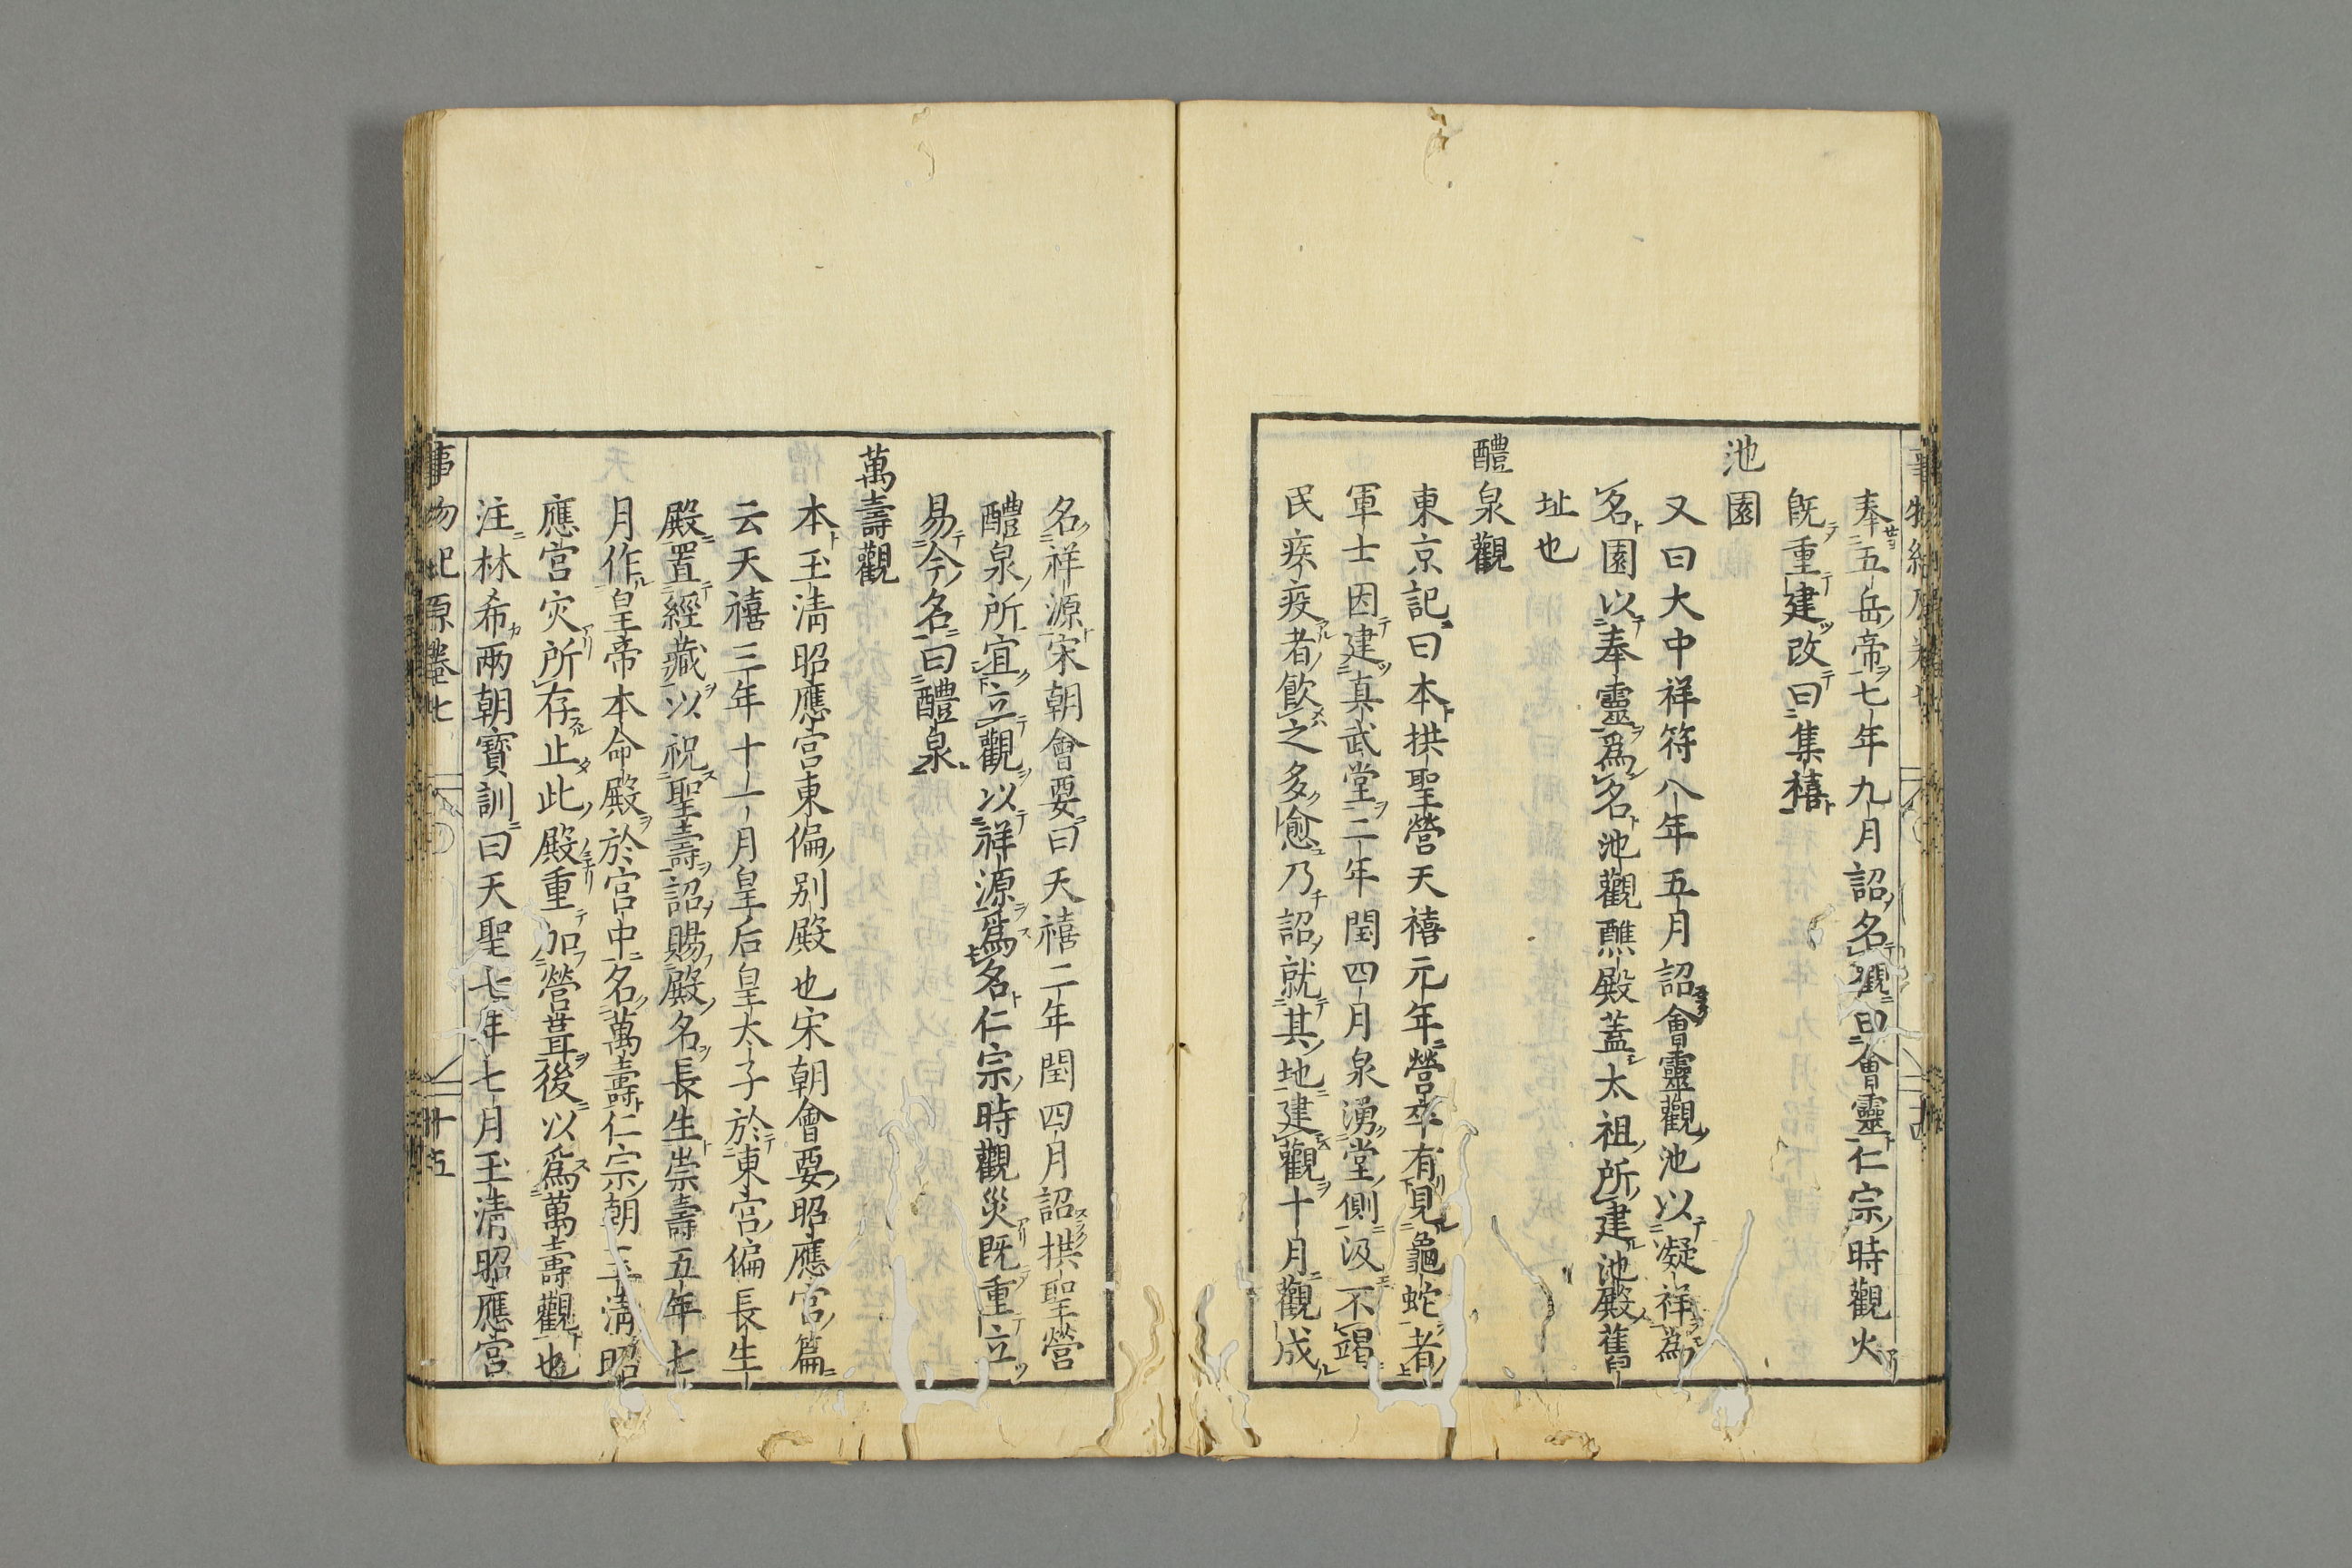 奉五岳帝七年九月詔名觀曰會靈仁宗時觀火
既重建改曰集禧
池園
又曰大中祥符八年五月詔會靈觀池以凝祥爲
名園以奉靈爲名池觀醮殿蓋太祖所建池殿舊
址也
醴泉觀
東京記曰本拱聖營天禧元年營卒有見龜蛇者
軍士因建真武堂二年閏四月泉湧堂側汲不竭
民疾疫者飲之多愈乃詔就其地建觀十月觀成
名祥源宋朝會要曰天禧二年閏四月詔拱聖營
醴泉所宜立觀以祥源爲名仁宗時觀災既重立
易今名曰醴泉
萬壽觀
本玉清昭應宮東偏別殿也宋朝會要昭應宮篇
云天禧三年十一月皇后皇太子於東宮偏長生
殿置經藏以祝聖壽詔賜殿名長生崇壽五年七
月作皇帝本命殿於宮中名萬壽仁宗朝玉清昭
應宮灾所存止此殿重加營葺後以爲萬壽觀也
注林希兩朝寶訓曰天聖七年七月玉清昭應宮
事物紀原卷七
十五